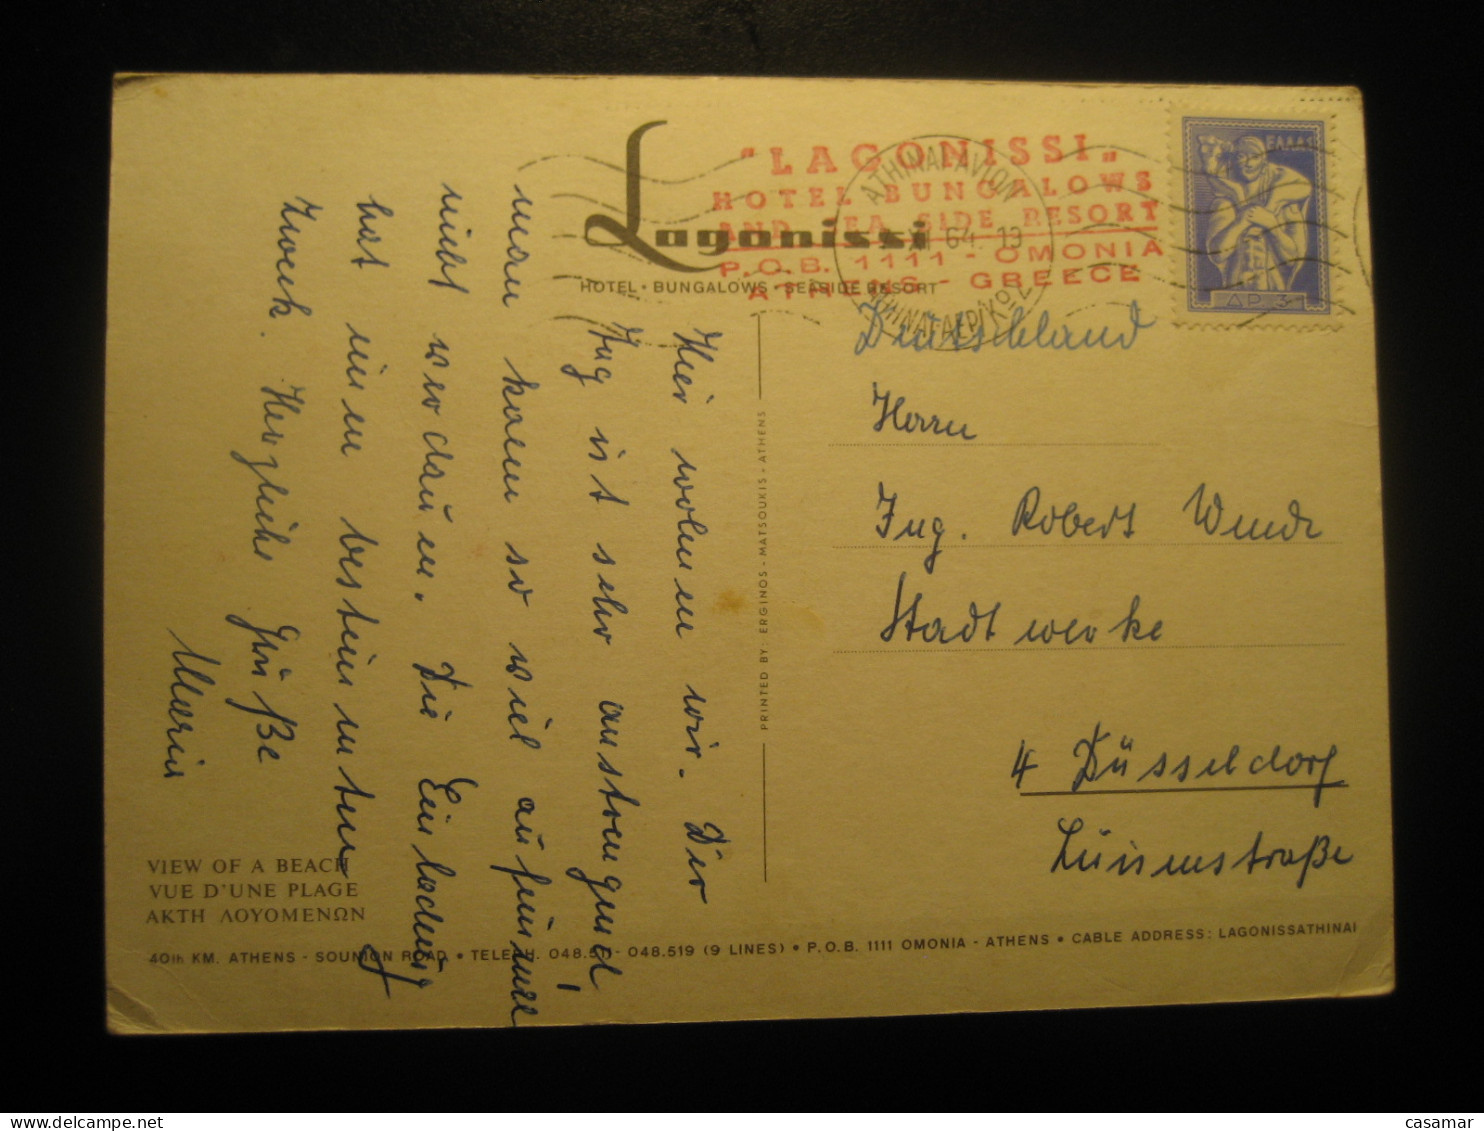 Lagonissi
HOTEL • BUNGALOWS • SEASIDE RESORT
"LAGONISSI"
HOTEL BUNGALOWS
AND SEA SIDE RESORT
P.O.B. 1111 - OMONIA
ATHENS - GREECE
ATHINAI AVION
64 19
ΕΛΛΑΣ
ΔΡ 3
Deutschland
Herrn
Ing. Robert Wunde
Stadtwerke
4 Düsseldorf
Luisenstraße
Hier wohnen wir. Der
Zug ist sehr anstrengend!
man kann so viel auf einmal
nicht verdauen. Die Einladung
hat einen bestimmten
Zweck. Herzliche Grüße
Maria
PRINTED BY: ERGINOS - MATSOUKIS - ATHENS
VIEW OF A BEACH
VUE D'UNE PLAGE
ΑΚΤΗ ΛΟΥΟΜΕΝΩΝ
40th KM. ATHENS - SOUNION ROAD • 048.519 (9 LINES) • P.O.B. 1111 OMONIA - ATHENS • CABLE ADDRESS: LAGONISSATHINAI
www.delcampe.net
casamar